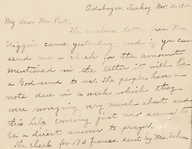 Adabazar, Turkey Nov. 16, 19
My dear Mrs. Peet,
The enclosed letter from Mrs.
Higgins came yesterday and if you can
send me a check for the amount
mentioned in the letter it will be
a God send to us. The people here
note due in a week which they
were worrying very much about and
this help coming just now seems to
be a direct answer to prayer.
The check for 170 francs sent by Mrs.